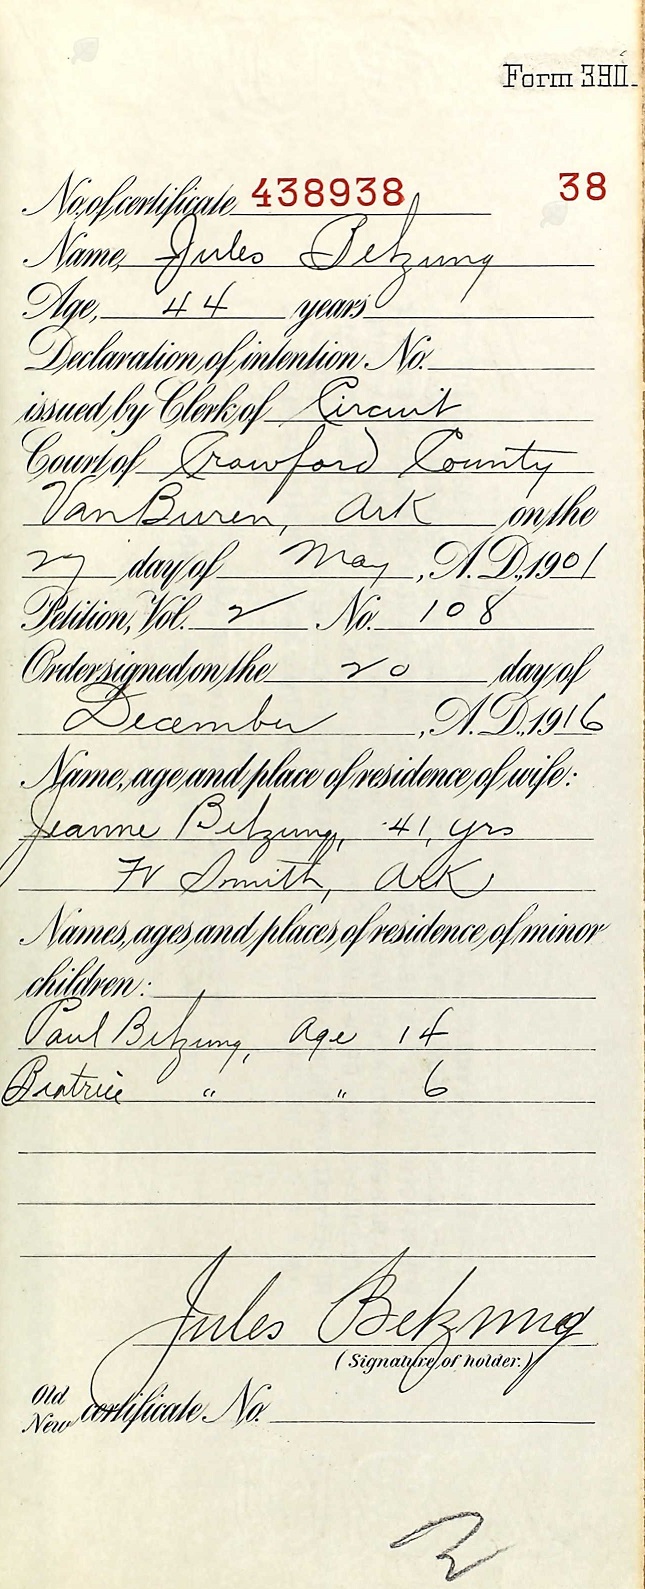 Form 390.
No. of certificate, 438938 38
Name, Jules Betzung
Age, 44 years
Declaration of intention No.
issued by Clerk of Circuit
Court of Crawford County
Van Buren, Ark on the
27 day of May, A.D., 1901
Petition, Vol. 2 No. 108
Order signed on the 20 day of
December, A.D., 1916
Name, age and place of residence of wife:
Jeanne Betzung, 41, yrs
Ft Smith, Ark
Names, ages, and places of residence of minor
children:
Paul Betzung, Age 14
Beatrice " " 6
Jules Betzung
(Signature of holder.)
Old
New certificate No.
2